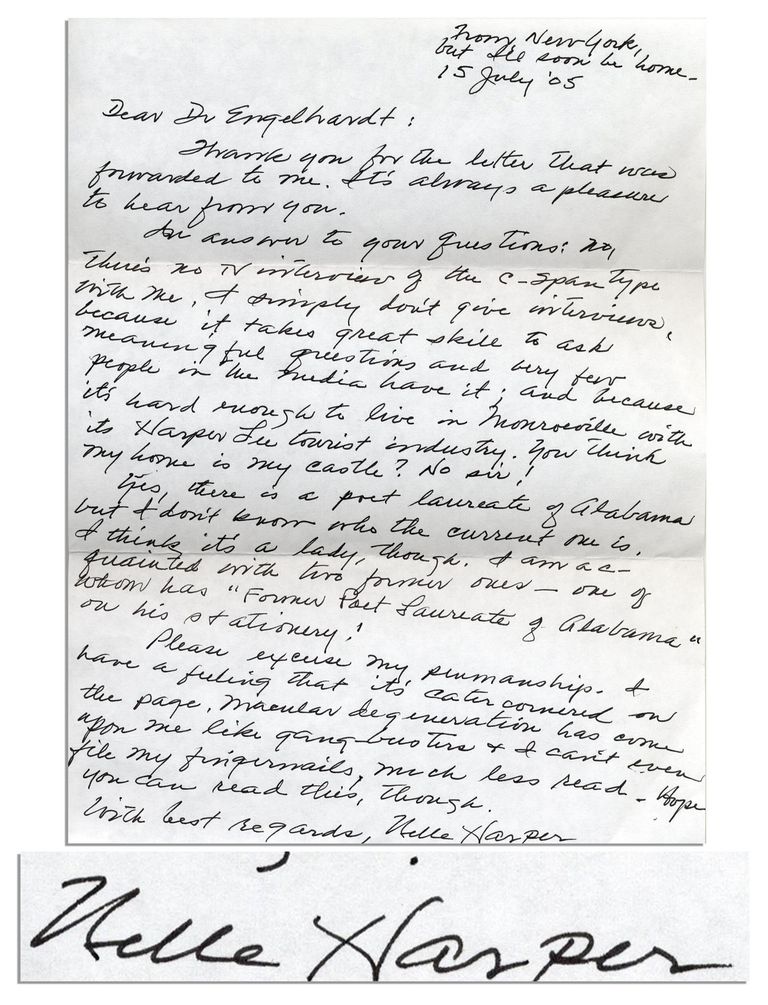 From New York,
but I'll soon be home-
15 July '05
Dear Dr Engelhardt:
Thank you for the letter that was
forwarded to me. It's always a pleasure
to hear from you.
In answer to your questions: no,
there's no TV interview of the C-Span type
with me. I simply don't give interviews,
because it takes great skill to ask
meaningful questions and very few
people in the media have it; and because
it's hard enough to live in Monroeville with
its Harper Lee tourist industry. You think
my home is my castle? No sir!
Yes, there is a poet laureate of Alabama
but I don't know who the current one is.
I think it's a lady, though. I am ac-
quainted with two former ones — one of
whom has "Former Poet Laureate of Alabama"
on his stationery!
Please excuse my penmanship. I
have a feeling that it's catercornered on
the page. Macular degeneration has come
upon me like gang-busters & I can't even
file my fingernails, much less read - Hope
you can read this, though.
With best regards, Nelle Harper
Nelle Harper